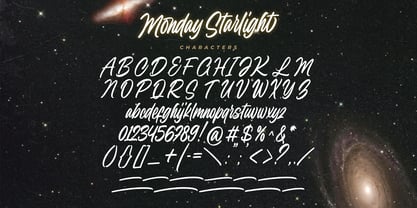 Monday Starlight
CHARACTERS
ABCDEFGHIJKLM
NOPQRSTUVWXYZ
abcdefghijklmnopqrstuvwxyz
0123456789!@#$%^&*
(){}[]_+|-=\:;"'<>?,./